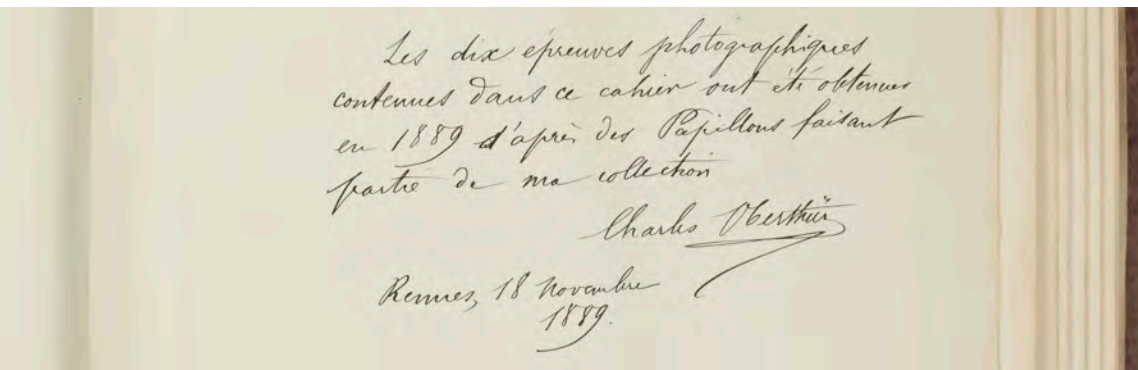 Les dix épreuves photographiques
contenues dans ce cahier ont été obtenues
en 1889 d'après des Papillons faisant
partie de ma collection
Charles Oberthür
Rennes, 18 Novembre
1889.